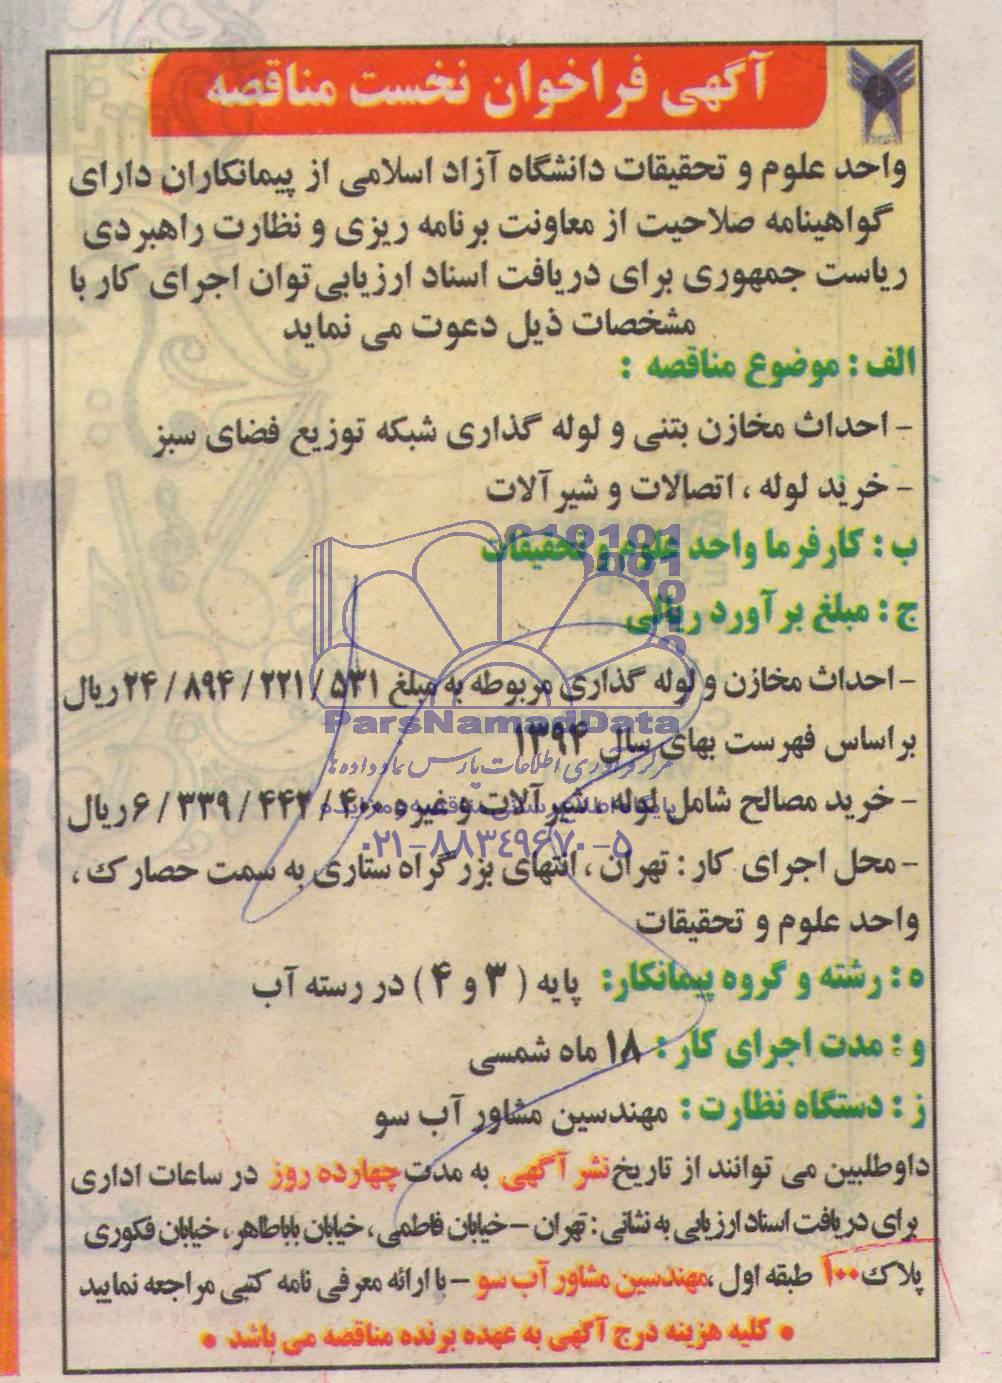 آگهی فراخوان نخست مناقصه
واحد علوم و تحقیقات دانشگاه آزاد اسلامی از پیمانکاران دارای
گواهینامه صلاحیت از معاونت برنامه ریزی و نظارت راهبردی
ریاست جمهوری برای دریافت اسناد ارزیابی توان اجرای کار با
مشخصات ذیل دعوت می نماید
الف : موضوع مناقصه :
- احداث مخازن بتنی و لوله گذاری شبکه توزیع فضای سبز
- خرید لوله ، اتصالات و شیر آلات
ب : کارفرما واحد علوم و تحقیقات
ج : مبلغ برآورد ریالی
- احداث مخازن و لوله گذاری مربوطه به مبلغ ۵۳۱ / ۲۲۱ / ۸۹۴ / ۲۴ ریال
ParsNamadData
براساس فهرست بهای سال ۱۳۹۴
مرکز فرآوری اطلاعات پارس نماد داده ها
- خرید مصالح شامل لوله ، شیر آلات و غیره ۴۰۰ / ۴۴۲ / ۳۳۹ / ۶ ریال
۰۲۱-۸۸۳۴۹۶۷۰-۵
- محل اجرای کار : تهران ، انتهای بزرگراه ستاری به سمت حصارک ،
واحد علوم و تحقیقات
ه : رشته و گروه پیمانکار: پایه ( ۳ و ۴ ) در رسته آب
و : مدت اجرای کار : ۱۸ ماه شمسی
ز : دستگاه نظارت : مهندسین مشاور آب سو
داوطلبین می توانند از تاریخ نشر آگهی به مدت چهارده روز در ساعات اداری
برای دریافت اسناد ارزیابی به نشانی : تهران - خیابان فاطمی ، خیابان باباطاهر ، خیابان فکوری
پلاک ۱۰۰ طبقه اول ، مهندسین مشاور آب سو - با ارائه معرفی نامه کتبی مراجعه نمایید
• کلیه هزینه درج آگهی به عهده برنده مناقصه می باشد •